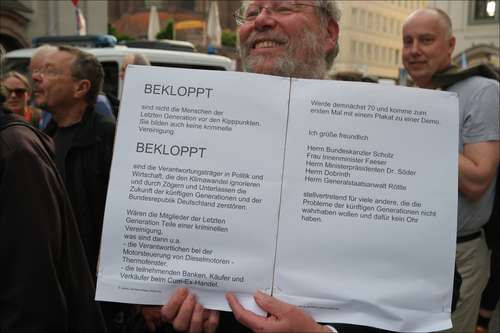 BEKLOPPT
sind nicht die Menschen der
Letzten Generation vor den Kipppunkten.
Sie bilden auch keine kriminelle
Vereinigung.
BEKLOPPT
sind die Verantwortungsträger in Politik und
Wirtschaft, die den Klimawandel ignorieren
und durch Zögern und Unterlassen die
Zukunft der künftigen Generationen und der
Bundesrepublik Deutschland zerstören.
Wären die Mitglieder der Letzten
Generation Teile einer kriminellen
Vereinigung,
was sind dann u.a.
- die Verantwortlichen bei der
Motorsteuerung von Dieselmotoren -
Thermofenster.
- die teilnehmenden Banken, Käufer und
Verkäufer beim Cum-Ex-Handel.
Werde demnächst 70 und komme zum
ersten Mal mit einem Plakat zu einer Demo.
Ich grüße freundlich
Herrn Bundeskanzler Scholz
Frau Innenminister Faeser
Herrn Ministerpräsident Dr. Söder
Herrn Dobrinth
Herrn Generalstaatsanwalt Röttle
stellvertretend für viele andere, die die
Probleme der künftigen Generationen nicht
wahrhaben wollen und dafür kein Ohr
haben.